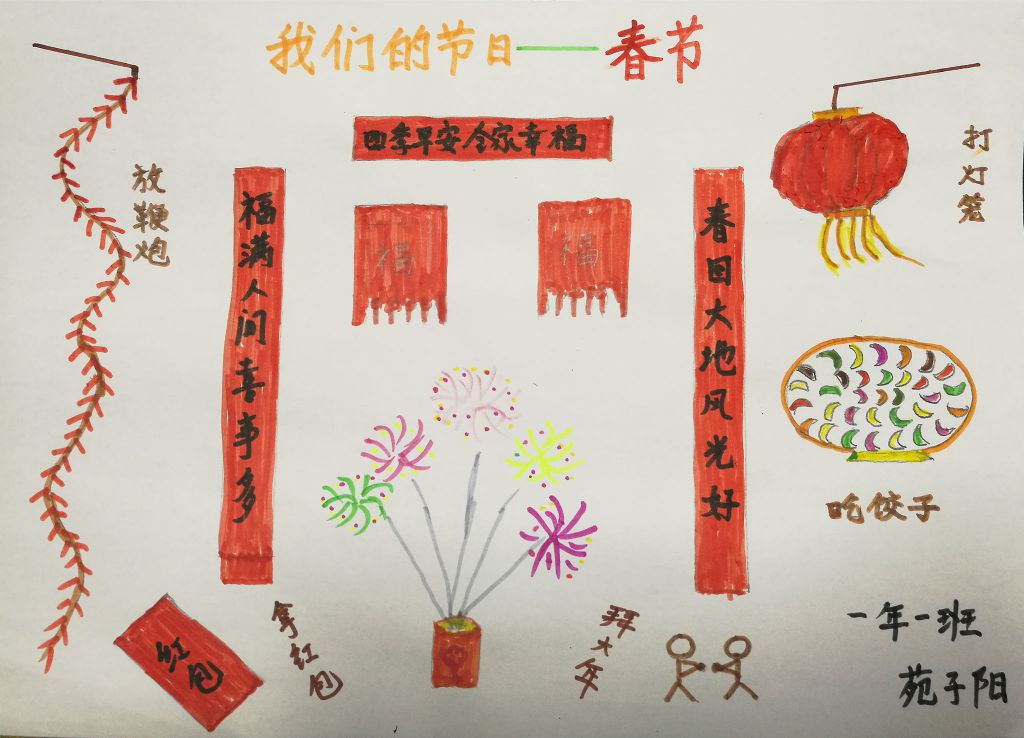 我们的节日——春节
四季早安全家幸福
打灯笼
放鞭炮
福满人间喜事多
福
福
春回大地风光好
吃饺子
红包
拿红包
拜大年
一年一班
苑子阳